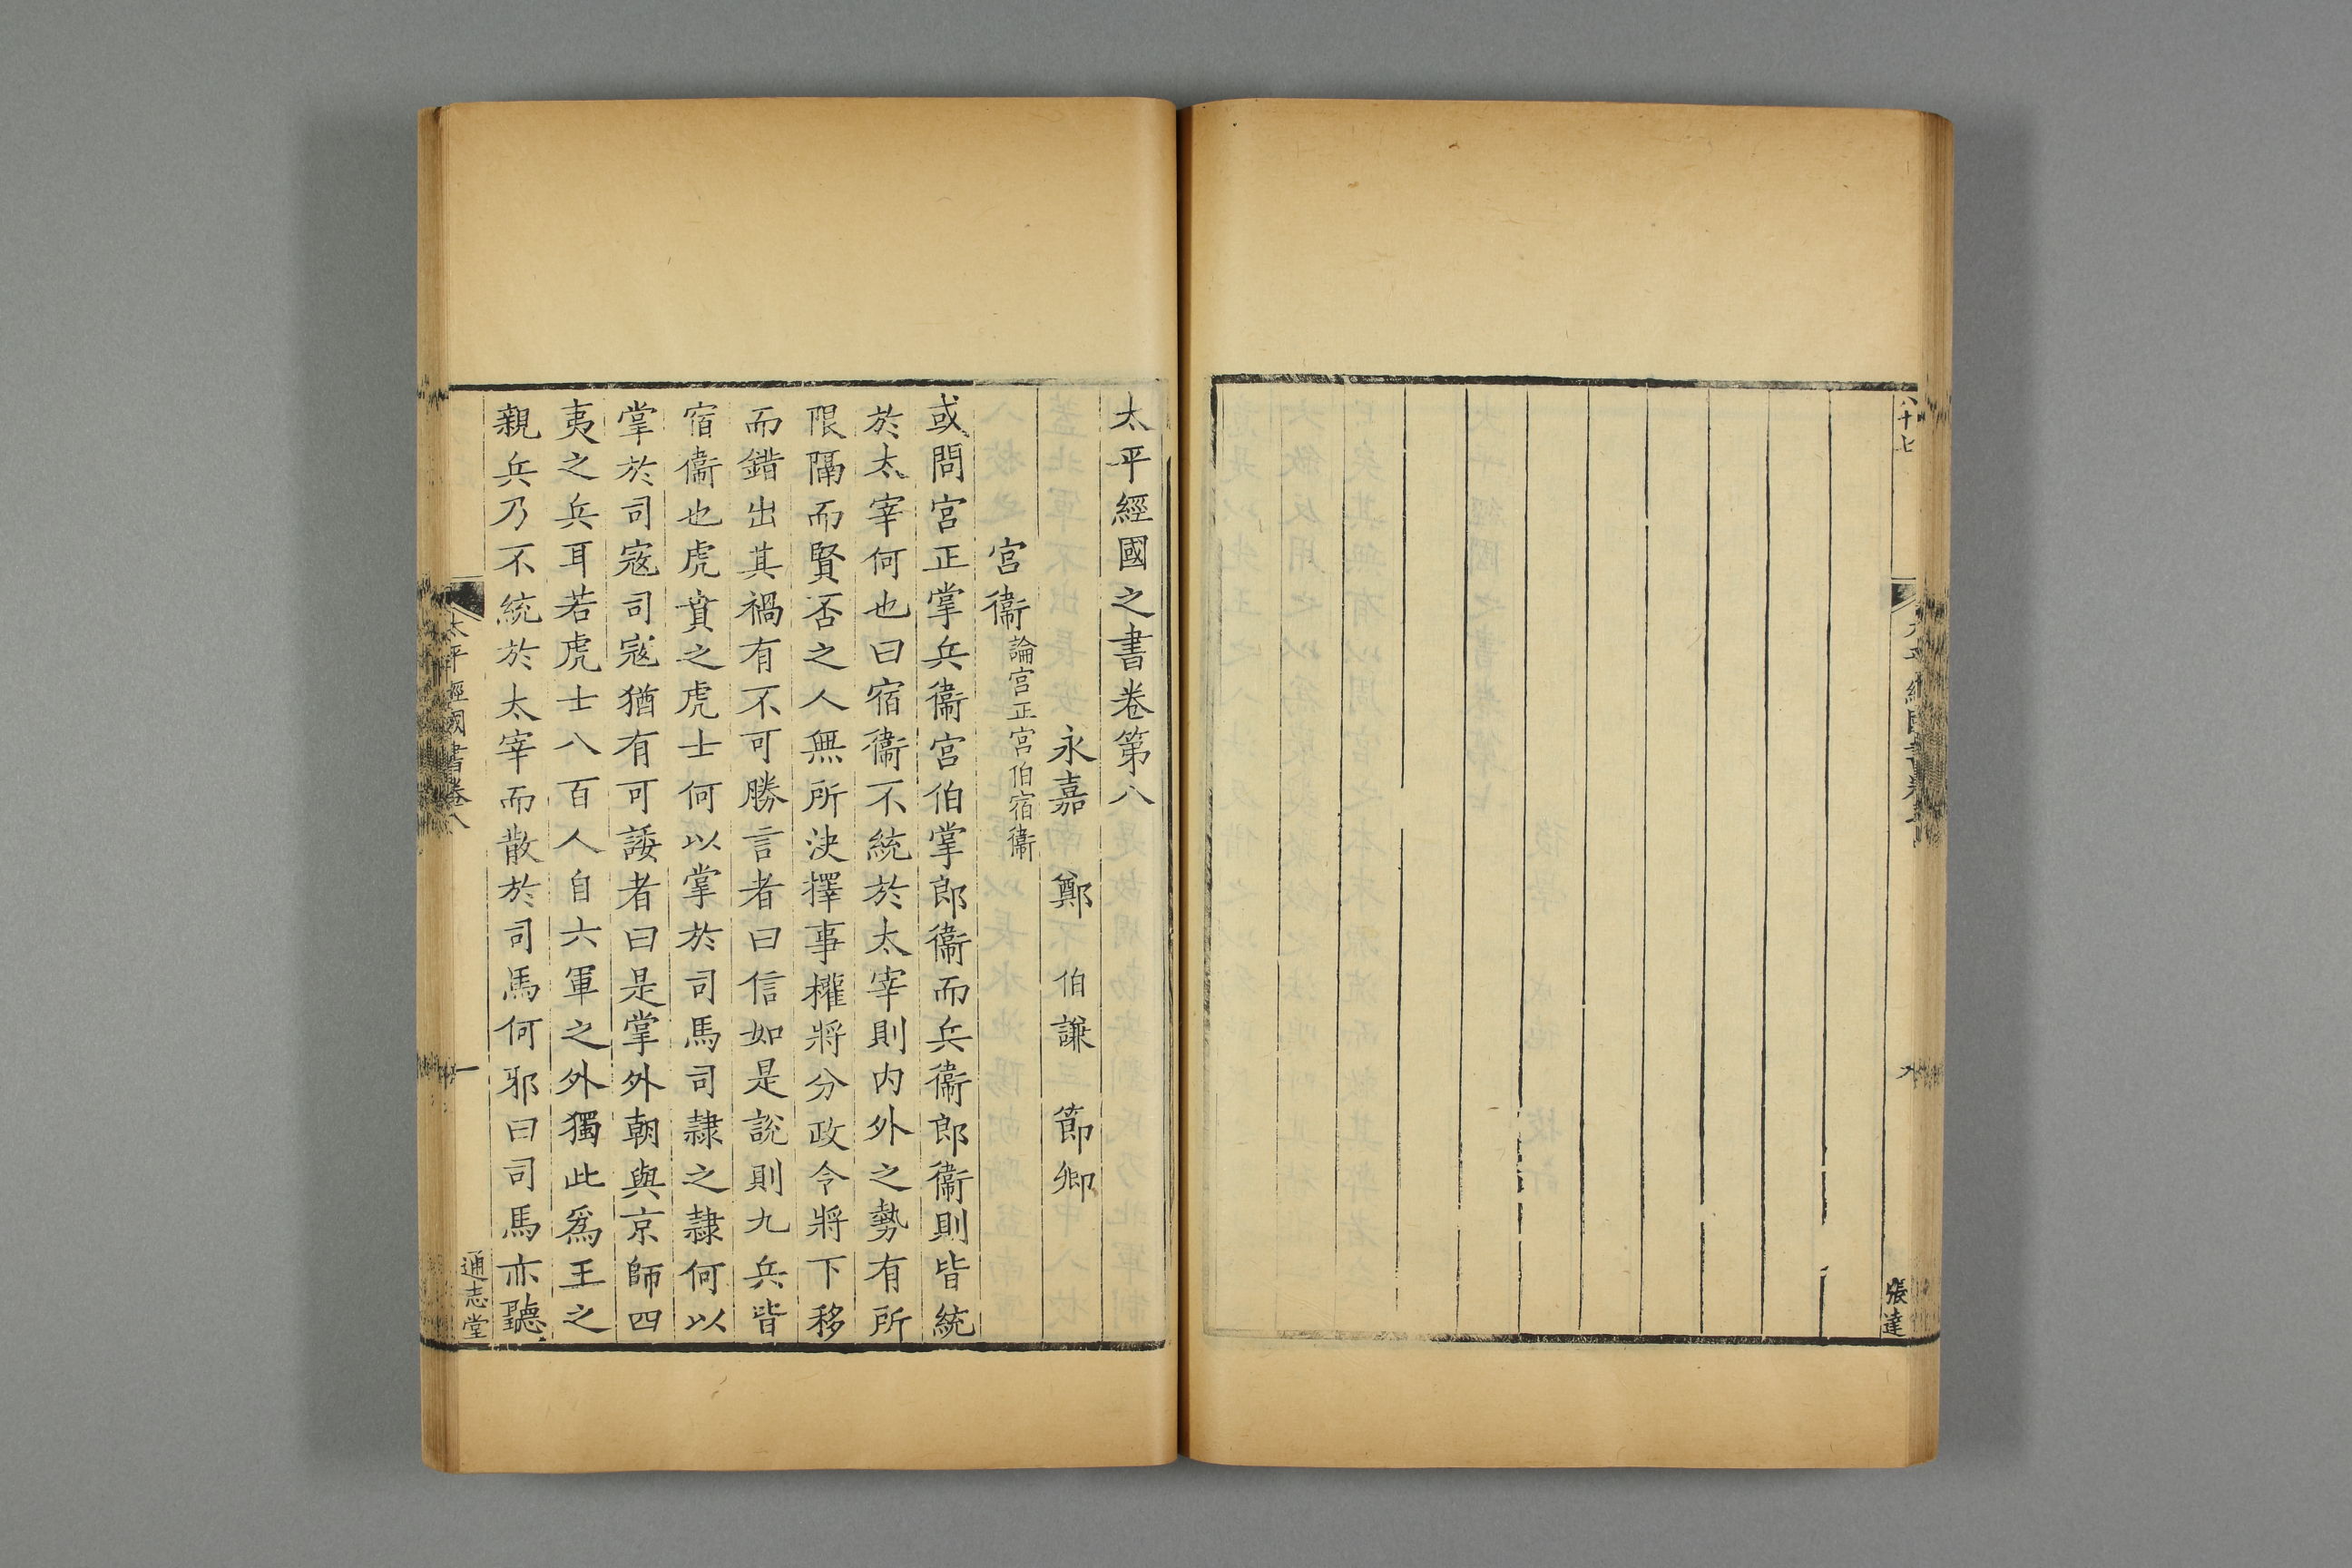 太平經國之書卷第八
永嘉 鄭 伯謙 節卿
宮衞論宮正宮伯宿衞
或問宮正掌兵衞宮伯掌郎衞而兵衞郎衞則皆統
於太宰何也曰宿衞不統於太宰則内外之勢有所
限隔而賢否之人無所決擇事權將分政令將下移
而錯出其禍有不可勝言者曰信如是說則九兵皆
宿衞也虎賁之虎士何以掌於司馬司隷之隷何以
掌於司寇司寇猶有可諉者曰是掌外朝與京師四
夷之兵耳若虎士八百人自六軍之外獨此爲王之
親兵乃不統於太宰而散於司馬何邪曰司馬亦聽
太平經國書卷八
一
通志堂
八十七
張達